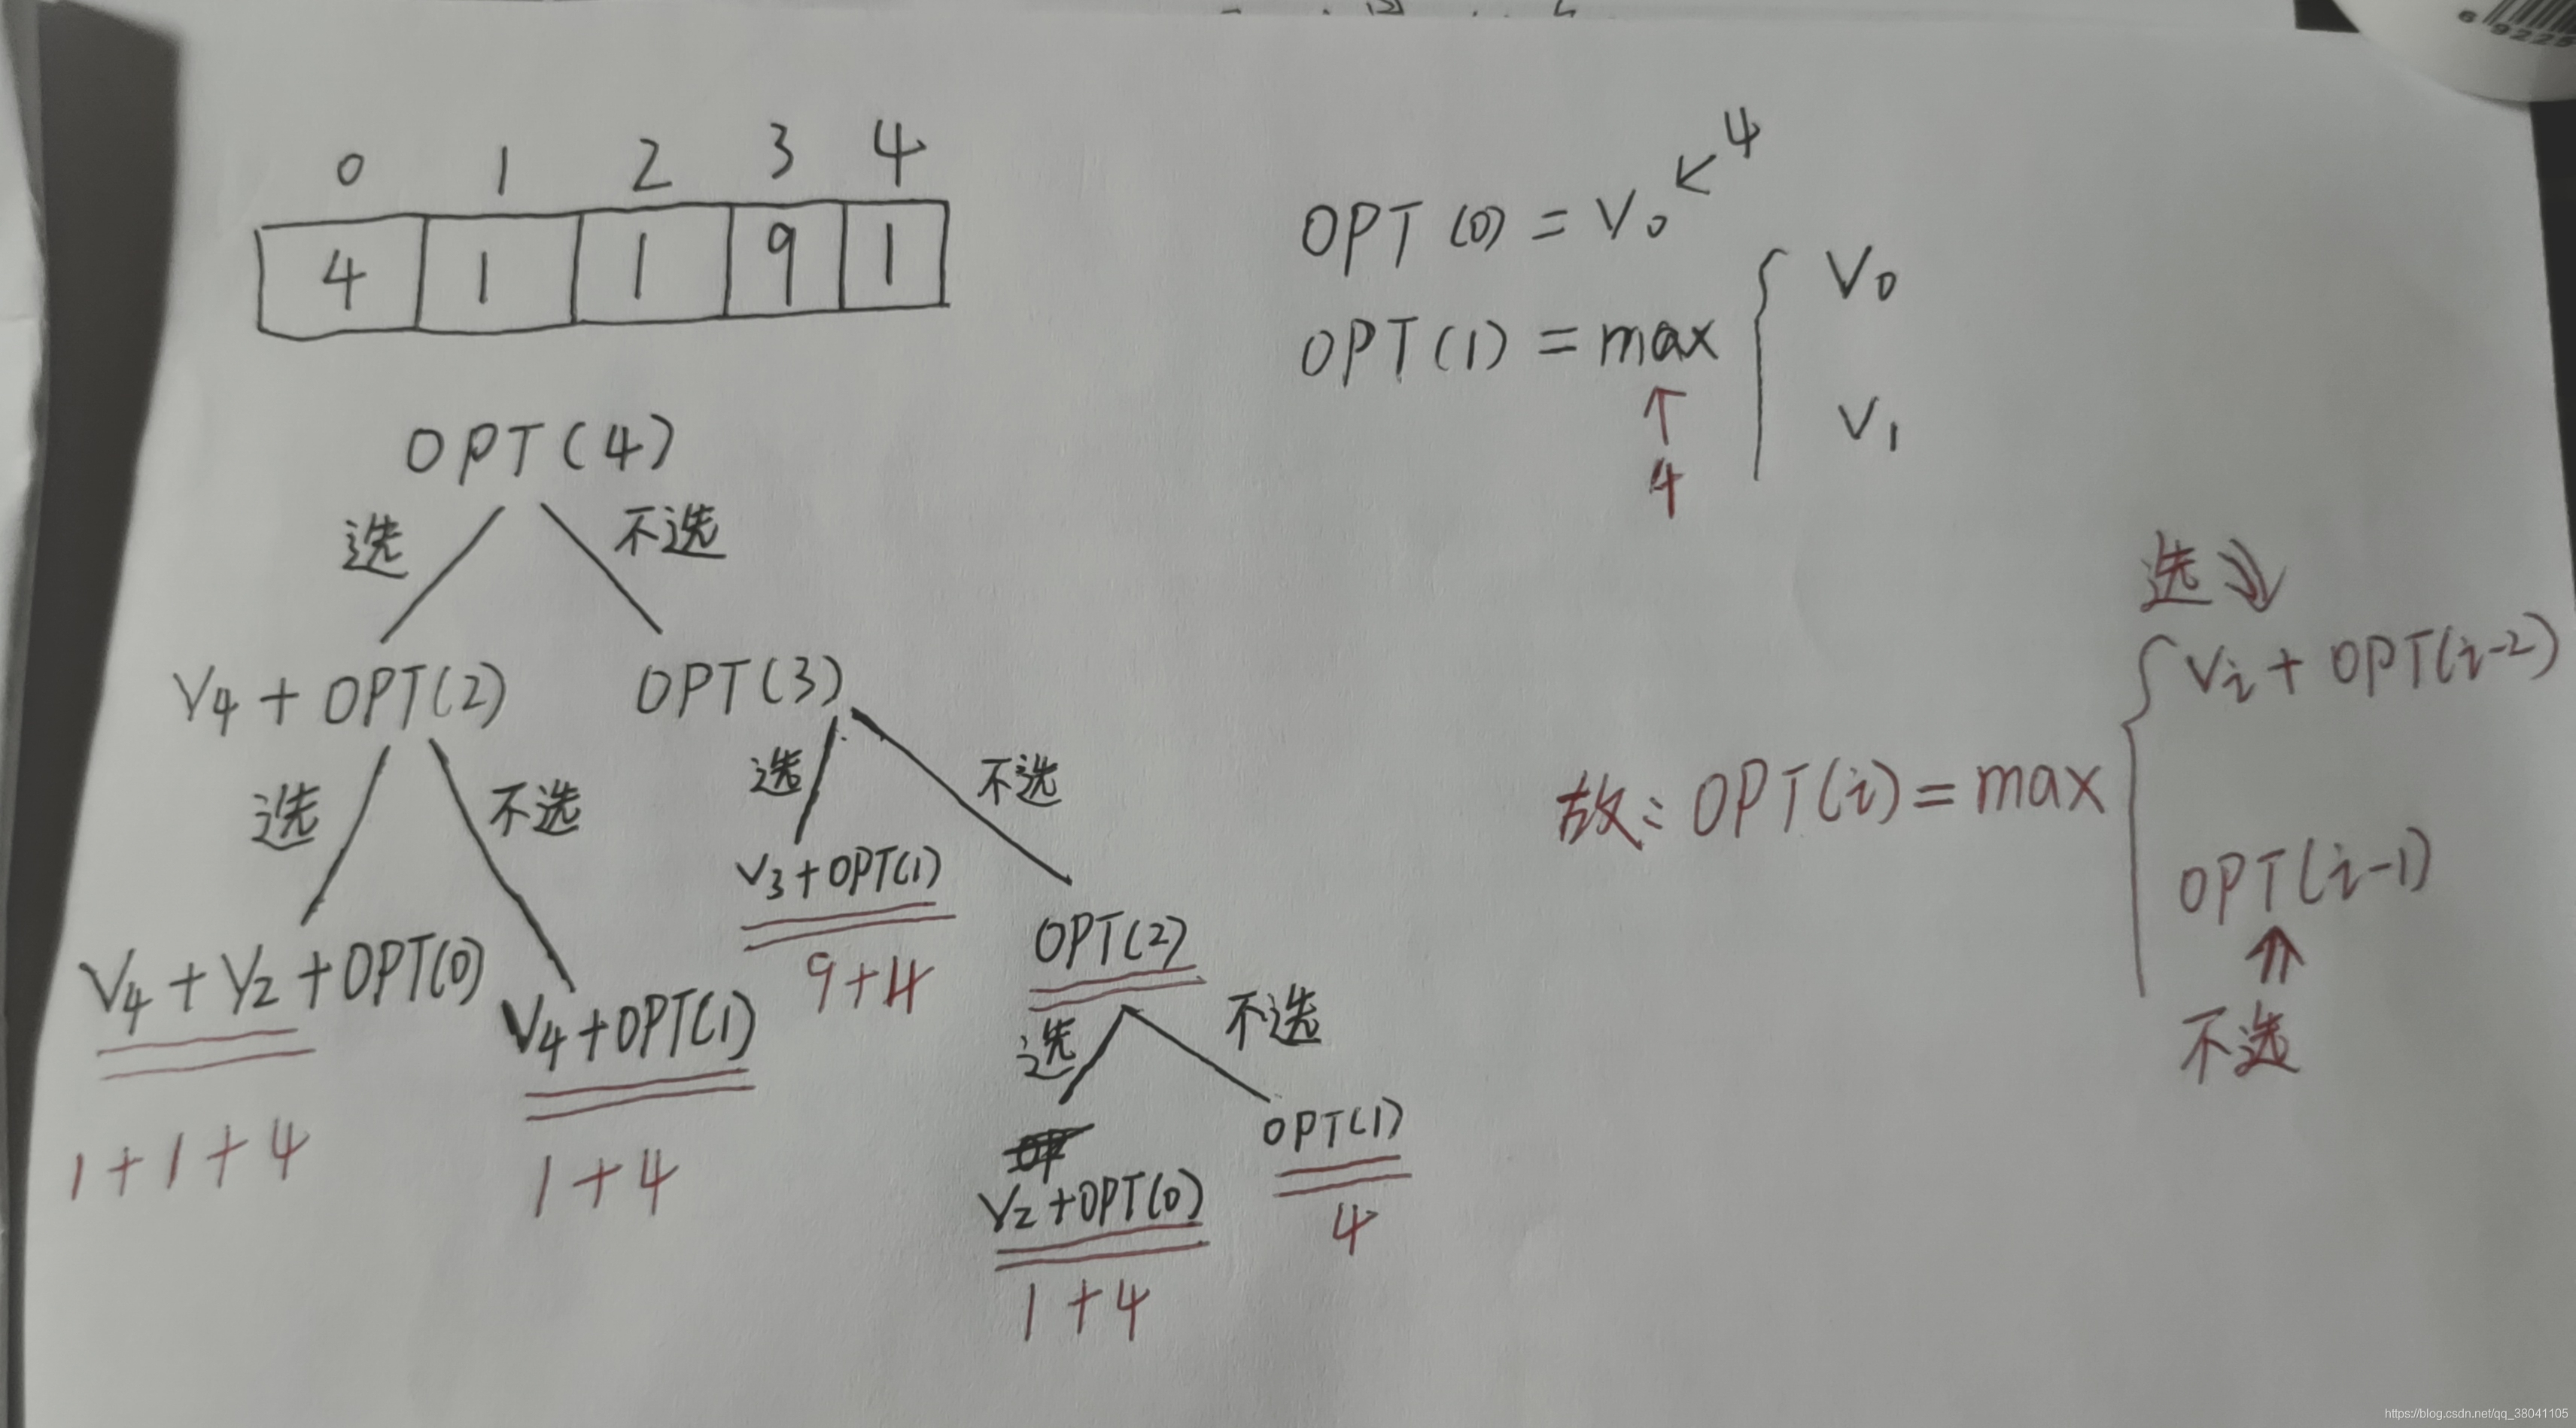 0 1 2 3 4
4 1 1 9 1
OPT(0) = V0 ↙ 4
OPT(1) = max { V0
V1
↑
4
OPT(4)
选 不选
V4 + OPT(2) OPT(3)
选 不选 选 不选
V3 + OPT(1)
9+4
OPT(2)
V4 + V2 + OPT(0)
1+1+4
V4 + OPT(1)
1+4
选 不选
V2 + OPT(0)
1+4
OPT(1)
4
选
故: OPT(i) = max { Vi + OPT(i-2)
OPT(i-1)
不选
69225
https://blog.csdn.net/qq_38041105